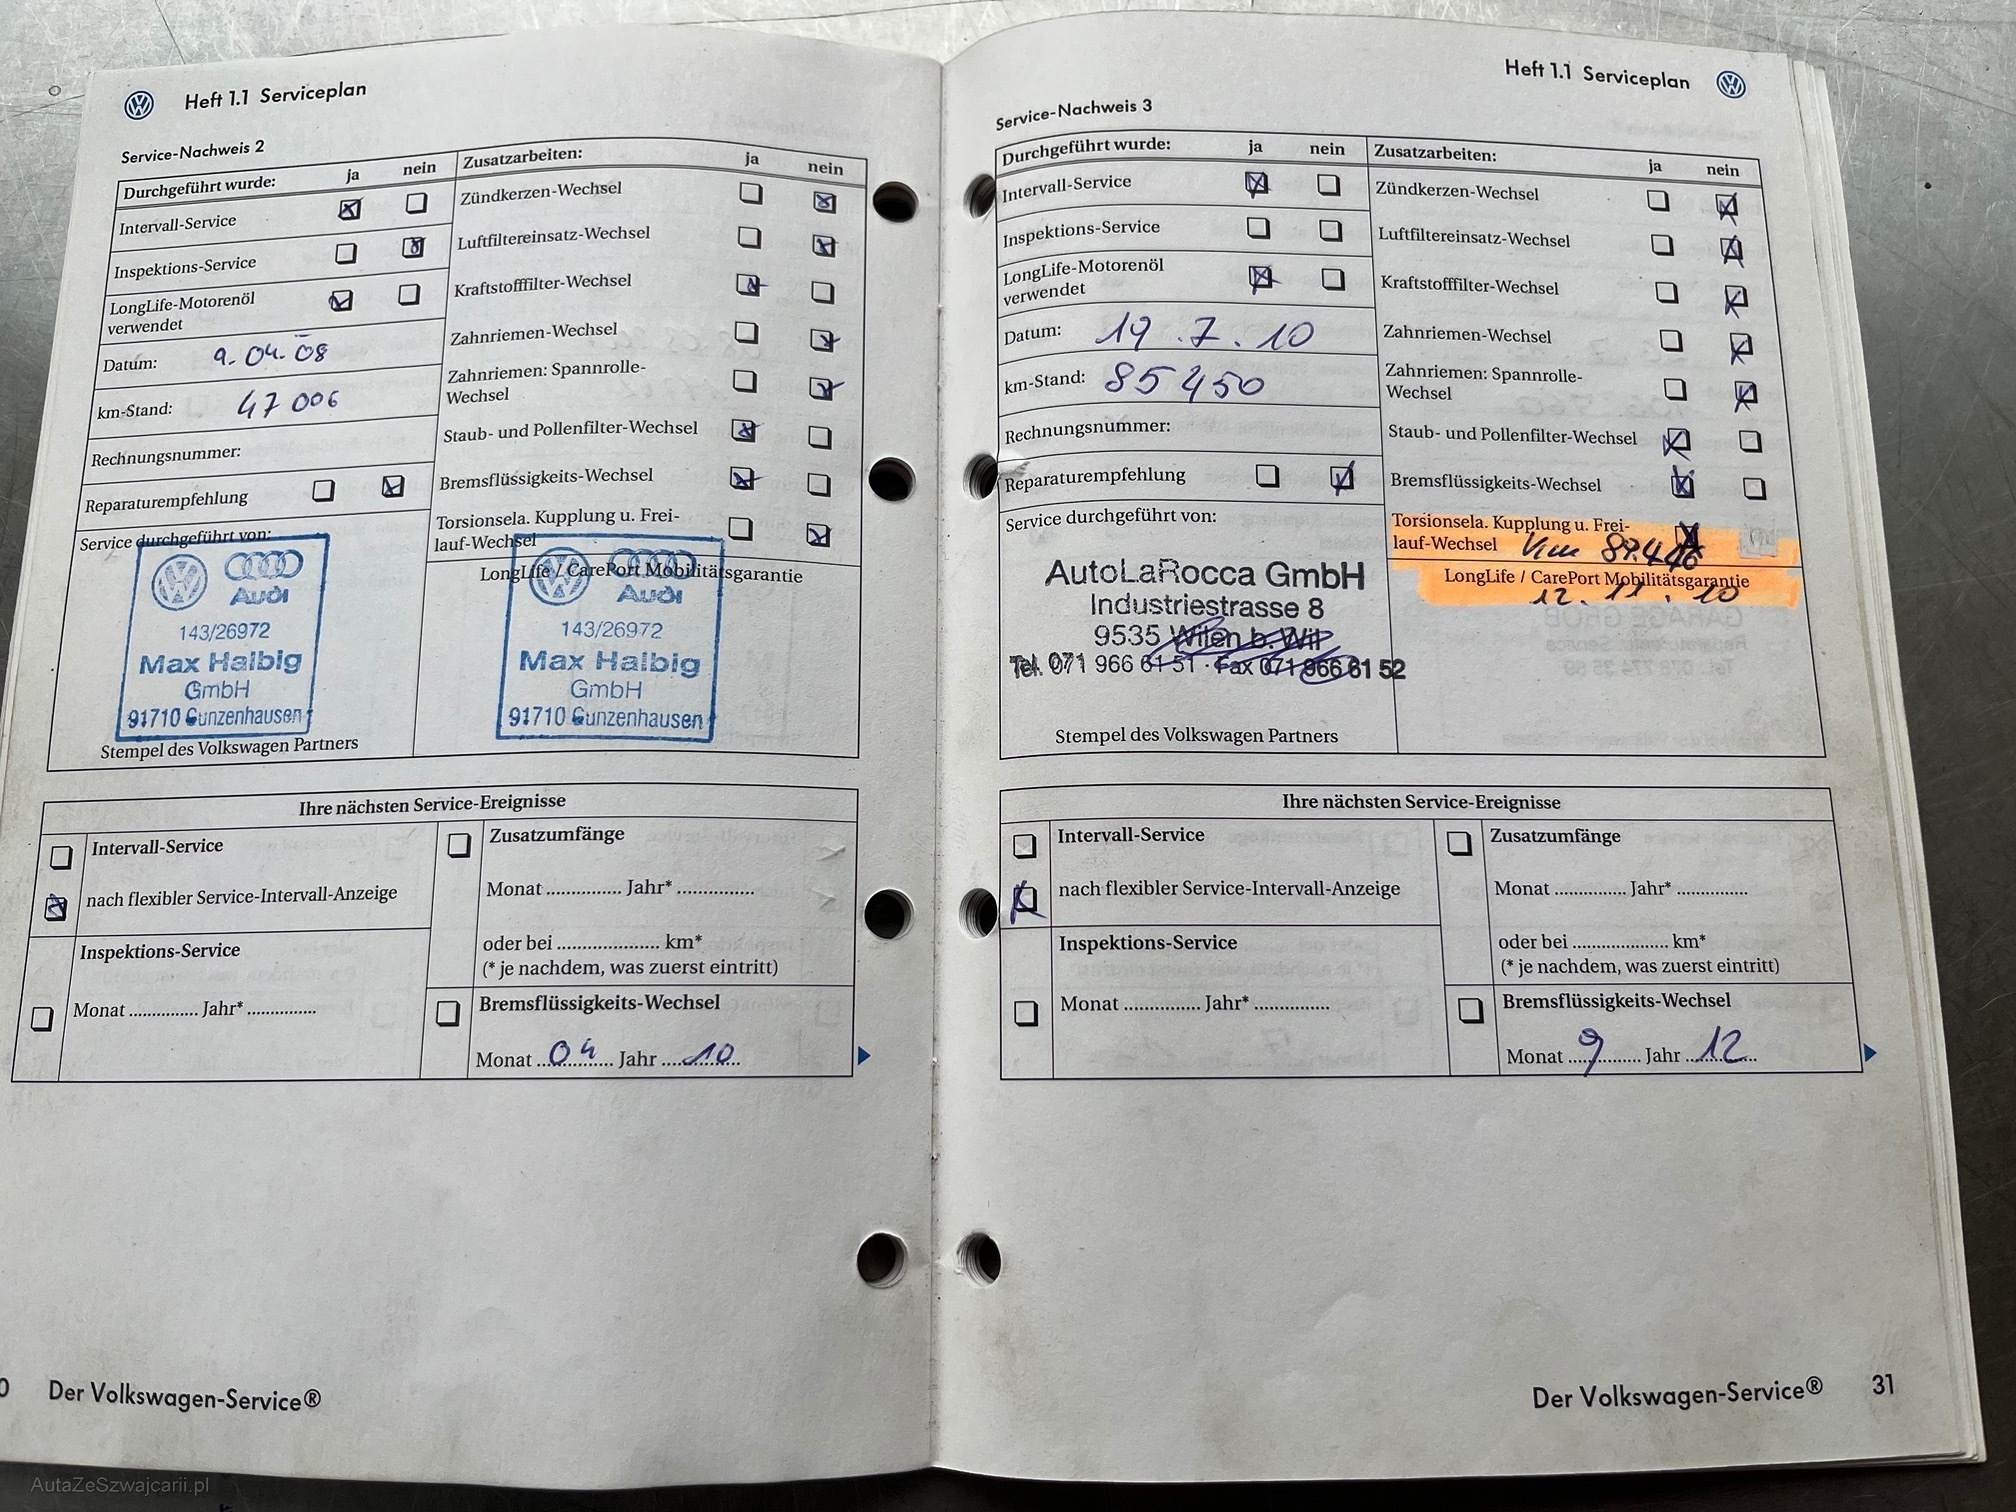 Heft 1.1 Serviceplan
Service-Nachweis 2
Durchgeführt wurde: ja nein
Intervall-Service
Inspektions-Service
LongLife-Motorenöl
verwendet
Datum: 9.04.08
km-Stand: 47 006
Rechnungsnummer:
Reparaturempfehlung
Service durchgeführt von:
Audi
143/26972
Max Halbig
GmbH
91710 Gunzenhausen
Stempel des Volkswagen Partners
Zusatzarbeiten: ja nein
Zündkerzen-Wechsel
Luftfiltereinsatz-Wechsel
Kraftstofffilter-Wechsel
Zahnriemen-Wechsel
Zahnriemen: Spannrolle-
Wechsel
Staub- und Pollenfilter-Wechsel
Bremsflüssigkeits-Wechsel
Torsionsela. Kupplung u. Frei-
lauf-Wechsel
LongLife / CarePort Mobilitätsgarantie
Audi
143/26972
Max Halbig
GmbH
91710 Gunzenhausen
Ihre nächsten Service-Ereignisse
Intervall-Service
nach flexibler Service-Intervall-Anzeige
Inspektions-Service
Monat ............... Jahr* ...............
Zusatzumfänge
Monat ............... Jahr* ...............
oder bei ..................... km*
(* je nachdem, was zuerst eintritt)
Bremsflüssigkeits-Wechsel
Monat ...04... Jahr ...10...
0 Der Volkswagen-Service®
Heft 1.1 Serviceplan
Service-Nachweis 3
Durchgeführt wurde: ja nein
Intervall-Service
Inspektions-Service
LongLife-Motorenöl
verwendet
Datum: 19.7.10
km-Stand: 85450
Rechnungsnummer:
Reparaturempfehlung
Service durchgeführt von:
AutoLaRocca GmbH
Industriestrasse 8
9535 Wilen b. Wil
Tel. 071 966 61 51 · Fax 071 966 61 52
Stempel des Volkswagen Partners
Zusatzarbeiten: ja nein
Zündkerzen-Wechsel
Luftfiltereinsatz-Wechsel
Kraftstofffilter-Wechsel
Zahnriemen-Wechsel
Zahnriemen: Spannrolle-
Wechsel
Staub- und Pollenfilter-Wechsel
Bremsflüssigkeits-Wechsel
Torsionsela. Kupplung u. Frei-
lauf-Wechsel
LongLife / CarePort Mobilitätsgarantie
12.11.10
Ihre nächsten Service-Ereignisse
Intervall-Service
nach flexibler Service-Intervall-Anzeige
Inspektions-Service
Monat ............... Jahr* ...............
Zusatzumfänge
Monat ............... Jahr* ...............
oder bei ..................... km*
(* je nachdem, was zuerst eintritt)
Bremsflüssigkeits-Wechsel
Monat ...9... Jahr ...12...
Der Volkswagen-Service® 31
AutaZeSzwajcarii.pl